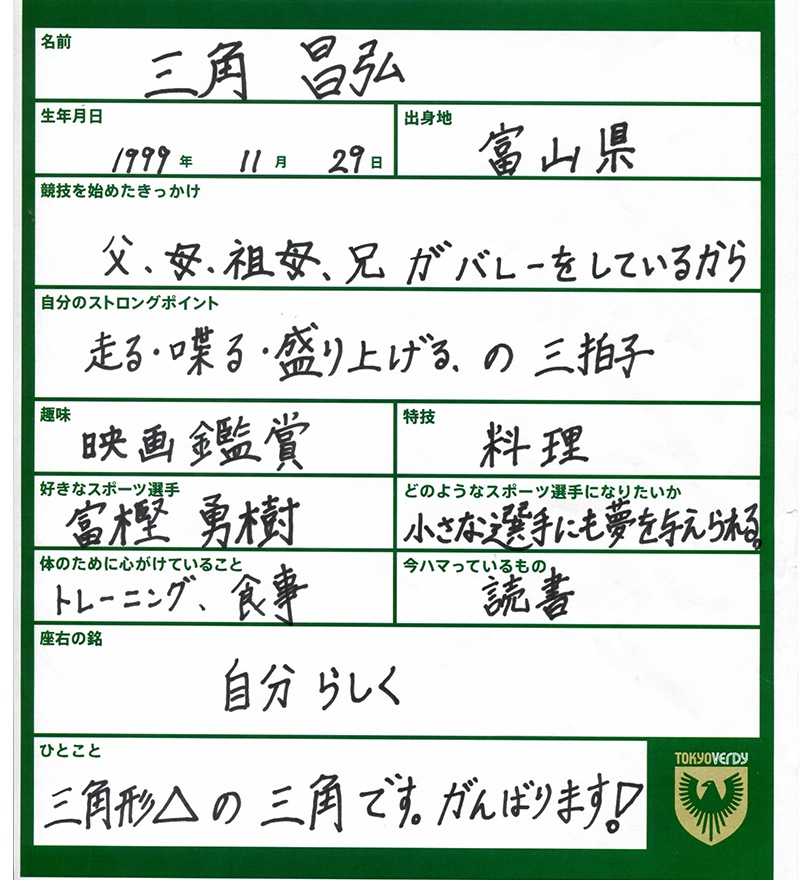 名前
三角 昌弘
生年月日
1999年 11月 29日
出身地
富山県
競技を始めたきっかけ
父、母、祖母、兄がバレーをしているから
自分のストロングポイント
走る・喋る・盛り上げる、の三拍子
趣味
映画鑑賞
特技
料理
好きなスポーツ選手
富樫 勇樹
どのようなスポーツ選手になりたいか
小さな選手にも夢を与えられる。
体のために心がけていること
トレーニング、食事
今ハマっているもの
読書
座右の銘
自分らしく
ひとこと
三角形△の三角です。がんばります!
TOKYO VERDY